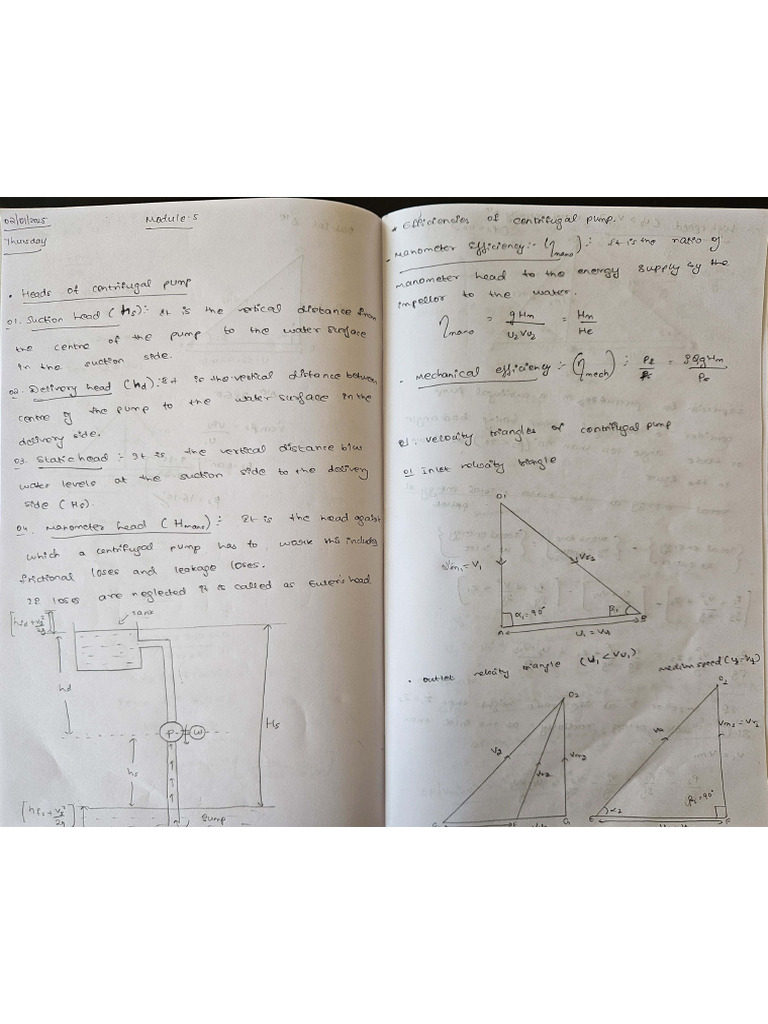 02/01/2025
Module-5
Thursday
• Heads of centrifugal pump
01. Suction head (hs): It is the vertical distance from
the centre of the pump to the water surface
in the suction side.
02. Delivery head (hd): It is the vertical distance between
centre of the pump to the water surface in the
delivery side.
03. Static head :- It is the vertical distance b/w
water levels at the suction side to the delivery
side (Hs).
04. Manometer head (Hmano): It is the head against
which a centrifugal pump has to work this includes
frictional loses and leakage loses.
If loses are neglected it is called as Euler's head
tank
hd
P
W
Hs
hs
Sump
* Efficiencies of centrifugal pump.
• Manometer Efficiency:- (ηmano): It is the ratio of
manometer head to the energy supply by the
impellor to the water.
ηmano = gHm/U2Vu2 = Hm/He
• Mechanical efficiency :- (ηmech) :
= ρQgHm/Ps
velocity triangles of centrifugal pump
01 Inlet velocity triangle
O1
Vm1 = V1
Vr1
α1=90°
β1
A
B
• outlet velocity triangle (U1<Vu1)
medium speed
O2
O2
V2
Vr2
Vm2
α2
β2=90°
E
F